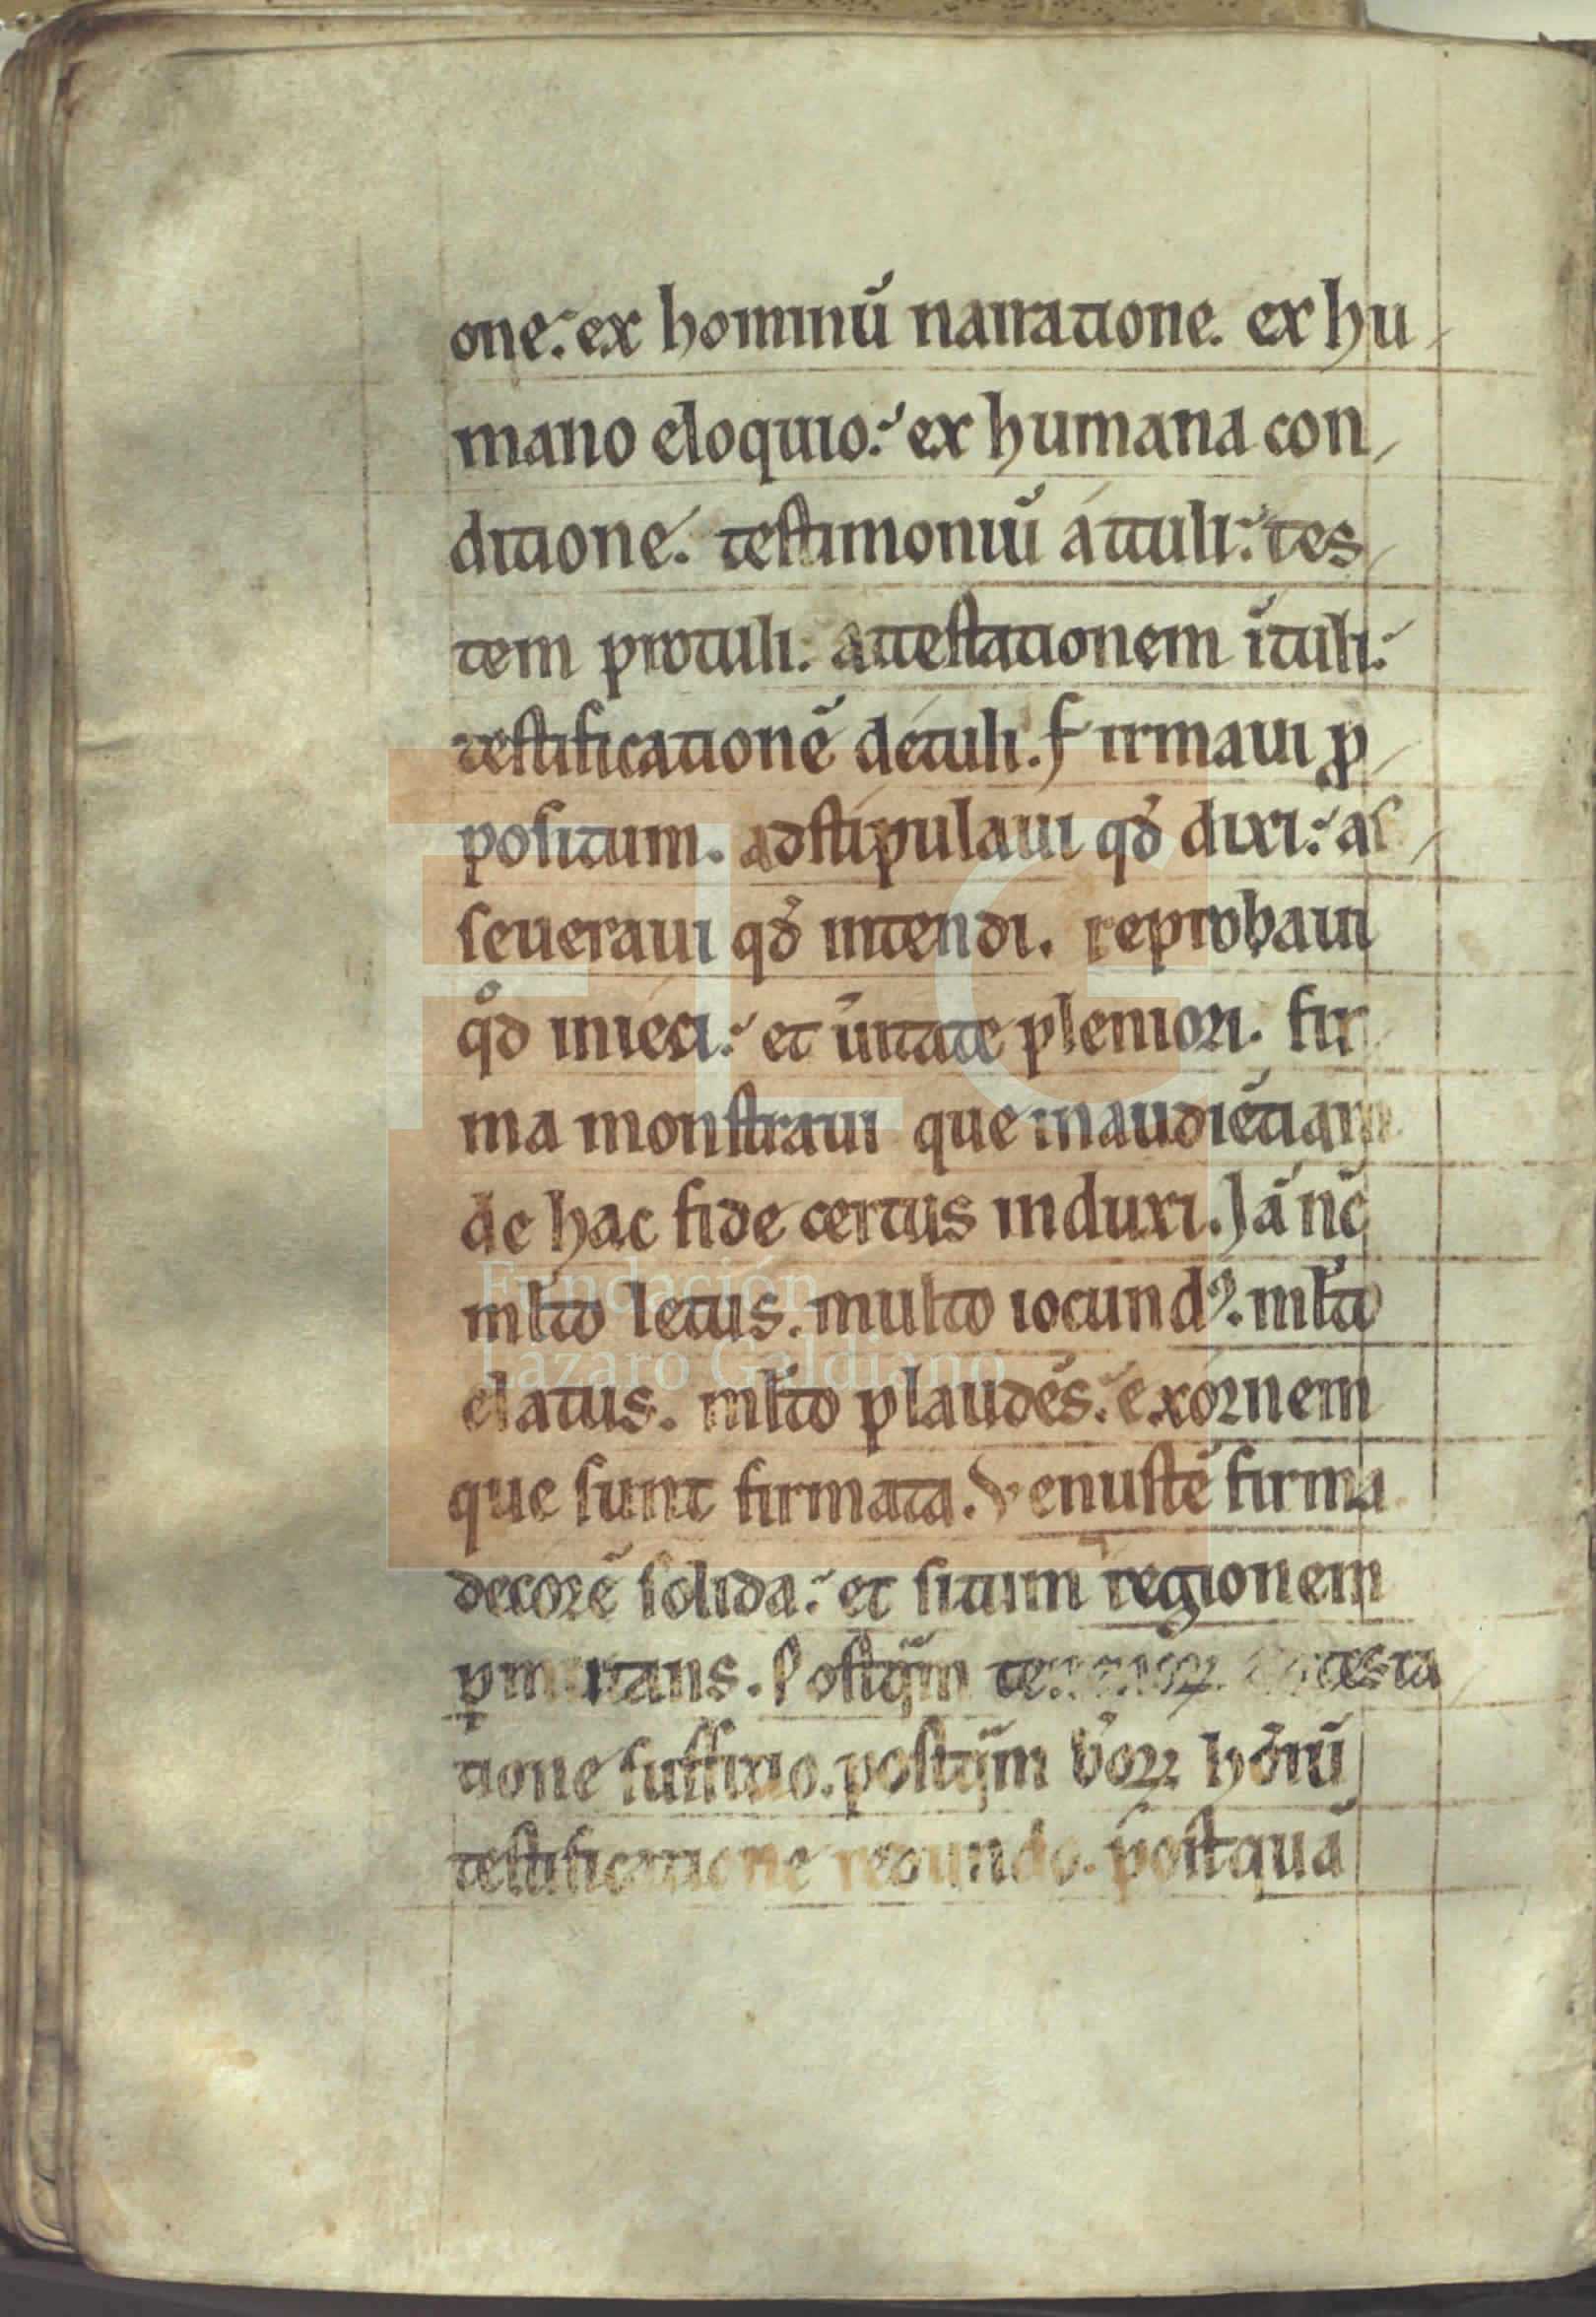 one. ex hominū narratione. ex hu
mano eloquio. ex humana con
ditione. testimoniū attuli. tes
tem protuli. attestationem ītuli.
testificationē detuli. firmaui ꝓ
positum. adstipulaui qd̓ dixi. as
seueraui qd̓ intendi. reprobaui
qd̊ inieci. et ūitate pleniori. fir
ma monstraui que inaudiētiam
de hac fide certus induxi. Jā nc̄
ml̄to letus. multo iocundꝰ. ml̄to
elatus. ml̄to plaudēs. exornem
que sunt firmata. Venustē firma
decorē solida. et situm regionem
Postqm̄ testa
tione suffixio. postqm̄ ho̅iū
testificatione redundo. postquā
Fundación
Lázaro Galdiano
FLG